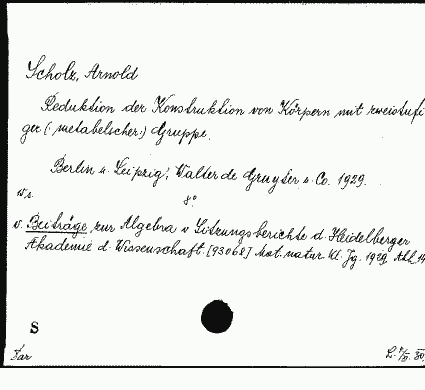 Scholz, Arnold
Reduktion der Konstruktion von Körpern mit zweistufi
ger (metabelscher) Gruppe.
Berlin u. Leipzig; Walter de Gruyter u. Co. 1929.
15 s. 8°
v. Beiträge zur Algebra v Sitzungsberichte d. Heidelberger
Akademie d. Wissenschaft. [93068] Mat. natur. Kl. Jg. 1929. Abh. 14
S
Far